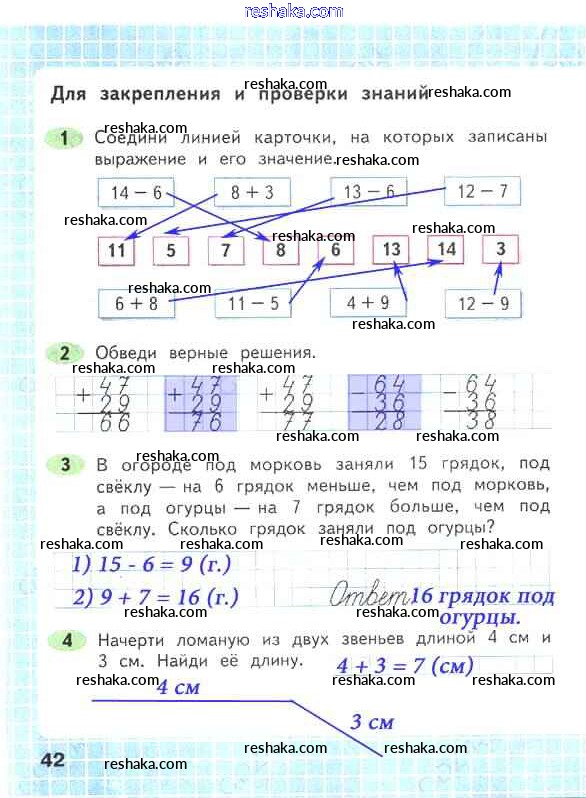 reshaka.com
reshaka.com
Для закрепления и проверки знаний
reshaka.com
1 Соедини линией карточки, на которых записаны
reshaka.com
выражение и его значение.
reshaka.com
14 − 6 8 + 3 13 − 6 12 − 7
reshaka.com
reshaka.com
11 5 7 8 6 13 14 3
reshaka.com
6 + 8 11 − 5 4 + 9 12 − 9
reshaka.com
reshaka.com
2 Обведи верные решения.
reshaka.com
reshaka.com
+ 47 + 47 + 47 − 64 − 64
29 29 29 36 36
66 76 77 28 38
reshaka.com
reshaka.com
3 В огороде под морковь заняли 15 грядок, под
свёклу — на 6 грядок меньше, чем под морковь,
reshaka.com
а под огурцы — на 7 грядок больше, чем под
свёклу. Сколько грядок заняли под огурцы?
reshaka.com
reshaka.com
1) 15 - 6 = 9 (г.)
reshaka.com
2) 9 + 7 = 16 (г.) Ответ: 16 грядок под
огурцы.
reshaka.com
reshaka.com
4 Начерти ломаную из двух звеньев длиной 4 см и
reshaka.com
3 см. Найди её длину. 4 + 3 = 7 (см)
reshaka.com
4 см
reshaka.com
3 см
reshaka.com
42
reshaka.com
reshaka.com